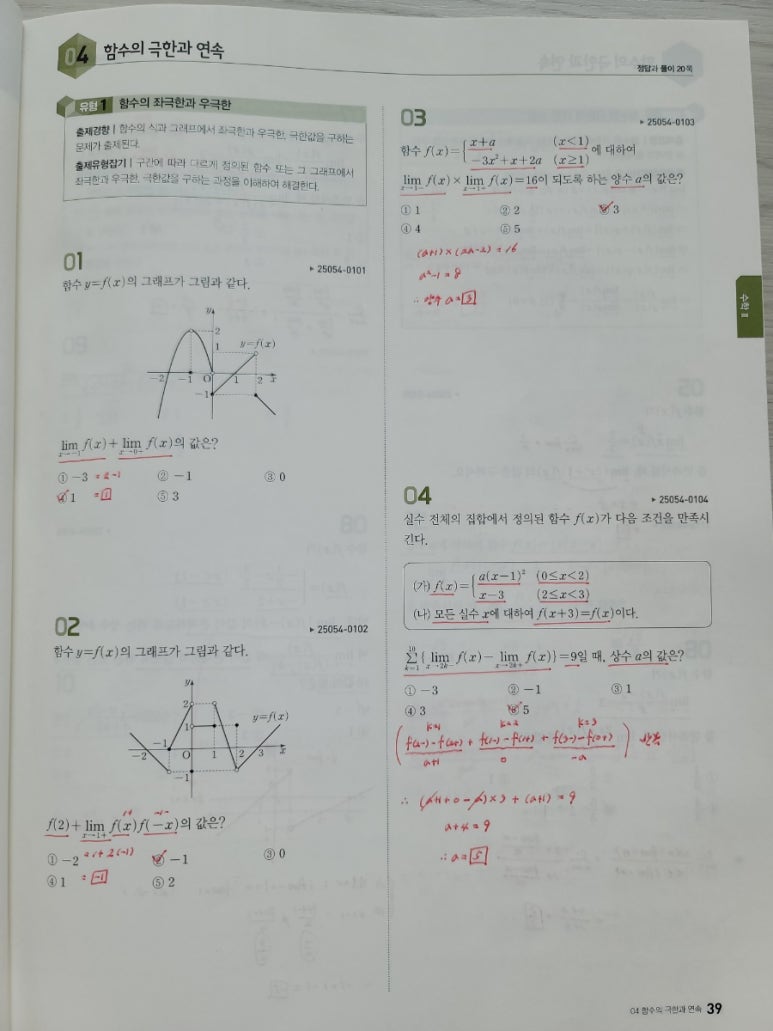 04 함수의 극한과 연속
정답과 풀이 20쪽
유형 1 함수의 좌극한과 우극한
출제경향 | 함수의 식과 그래프에서 좌극한과 우극한, 극한값을 구하는
문제가 출제된다.
출제유형잡기 | 구간에 따라 다르게 정의된 함수 또는 그 그래프에서
좌극한과 우극한, 극한값을 구하는 과정을 이해하여 해결한다.
01
▶ 25054-0101
함수 y=f(x)의 그래프가 그림과 같다.
y
2
1
y=f(x)
-2 -1 O 1 2 x
-1
lim x→-1 f(x)+lim x→0- f(x)의 값은?
① -3 = 2-1 ② -1 ③ 0
④ 1 = 1 ⑤ 3
02
▶ 25054-0102
함수 y=f(x)의 그래프가 그림과 같다.
y
2
1
y=f(x)
-2 -1 O 1 2 3 x
-1
1+ -1-
f(2)+lim x→1+ f(x)f(-x)의 값은?
① -2 = 1+2(-1) ② -1 ③ 0
④ 1 = -1 ⑤ 2
03
▶ 25054-0103
함수 f(x)={ x+a (x<1)
-3x²+x+2a (x≥1) 에 대하여
lim x→1- f(x)×lim x→1+ f(x)=16이 되도록 하는 양수 a의 값은?
① 1 ② 2 ③ 3
④ 4 ⑤ 5
(a+1)×(2a-2)=16
a²-1=8
∴ 양수 a=3
수학 Ⅱ
04
▶ 25054-0104
실수 전체의 집합에서 정의된 함수 f(x)가 다음 조건을 만족시
킨다.
(가) f(x)={ a(x-1)² (0≤x<2)
x-3 (2≤x<3)
(나) 모든 실수 x에 대하여 f(x+3)=f(x)이다.
10 Σ k=1 { lim x→2k- f(x)-lim x→2k+ f(x)}=9일 때, 상수 a의 값은?
① -3 ② -1 ③ 1
④ 3 ⑤ 5
k=1 k=2 k=3
( f(2-)-f(2+) + f(1-)-f(1+) + f(3-)-f(0+) ) 반복
a+1 0 -a
∴ (a+1+0-a)×3+(a+1)=9
a+4=9
∴ a=5
04 함수의 극한과 연속 39